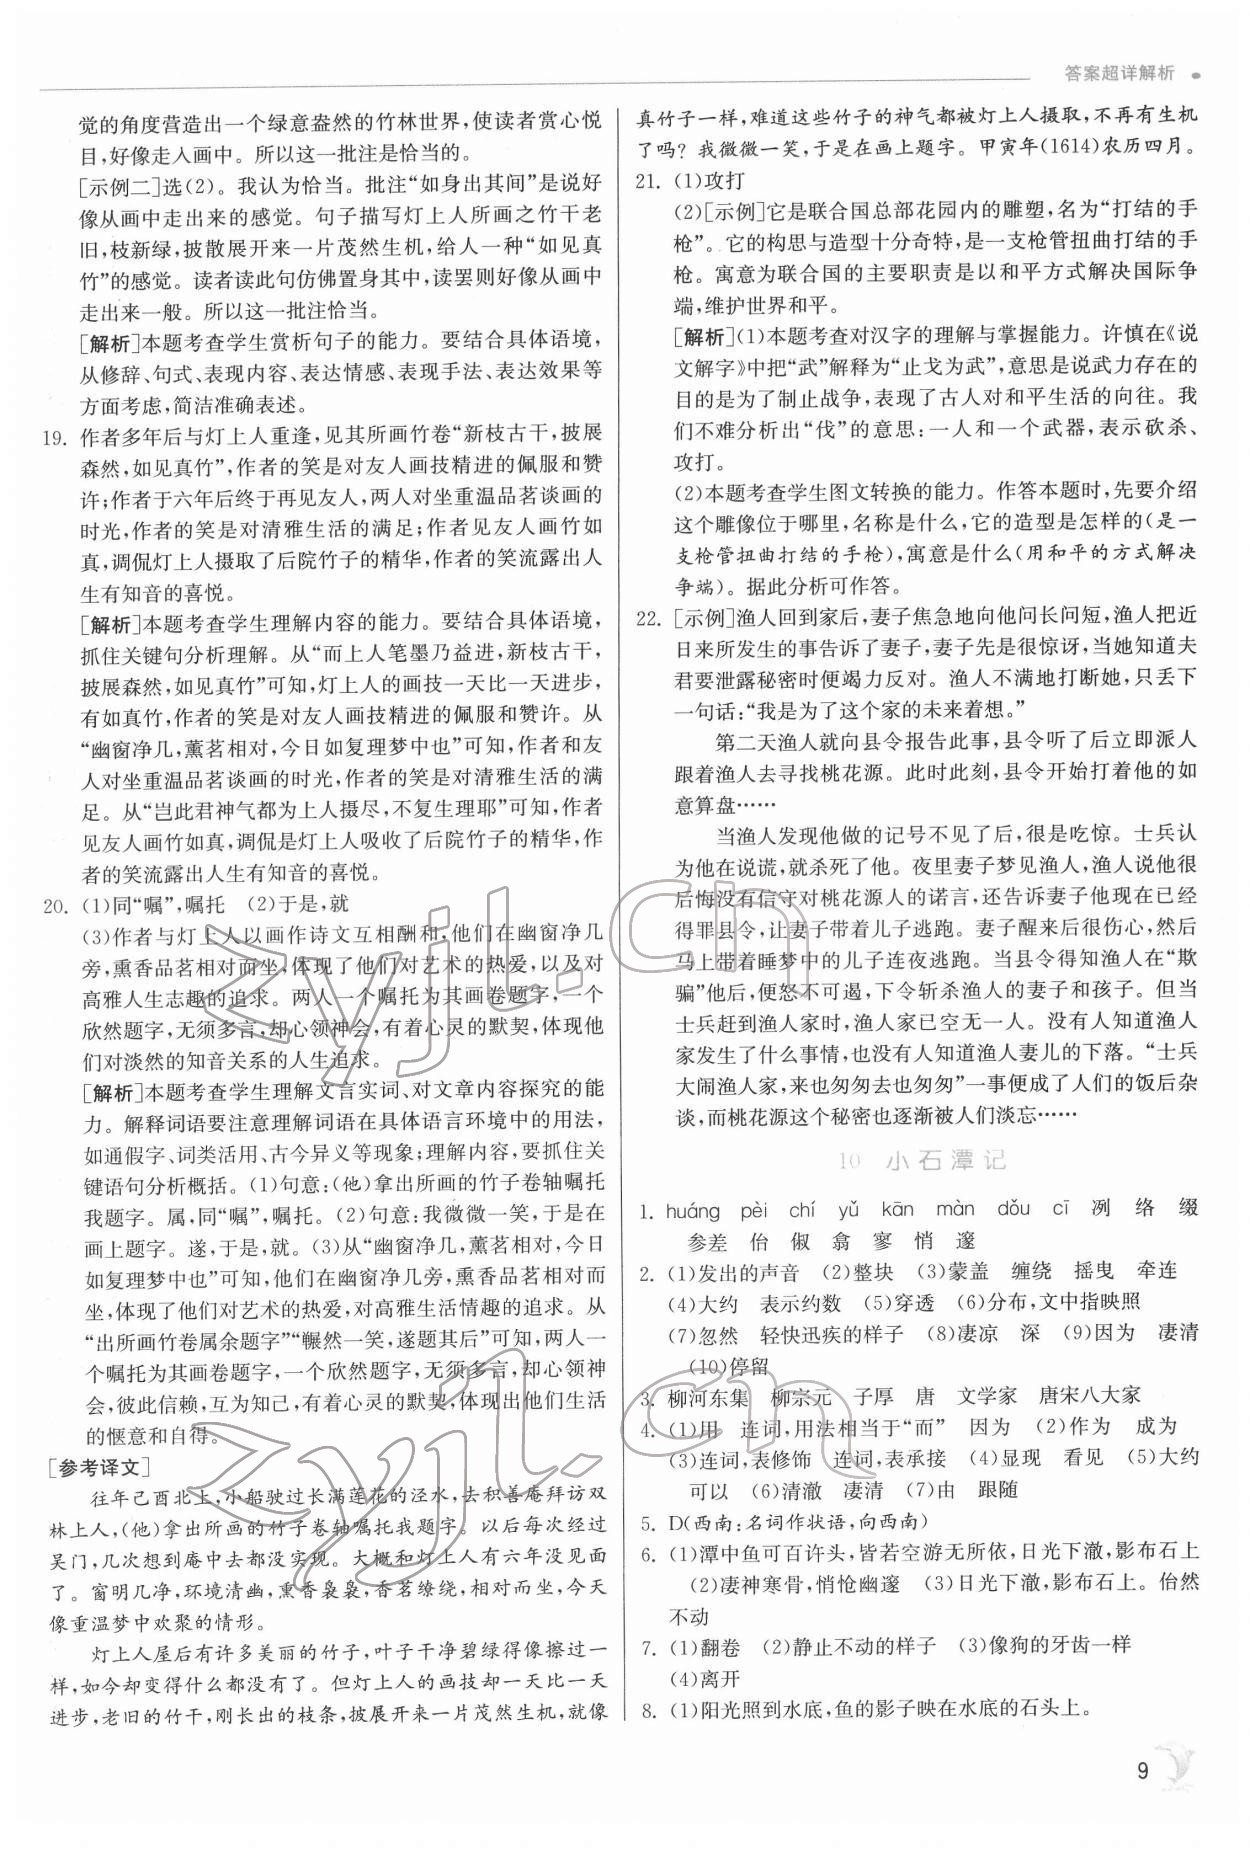 答案超详解析
觉的角度营造出一个绿意盎然的竹林世界,使读者赏心悦
目,好像走入画中。所以这一批注是恰当的。
[示例二]选(2)。我认为恰当。批注“如身出其间”是说好
像从画中走出来的感觉。句子描写灯上人所画之竹干老
旧,枝新绿,披散展开来一片茂然生机,给人一种“如见真
竹”的感觉。读者读此句仿佛置身其中,读罢则好像从画中
走出来一般。所以这一批注恰当。
[解析]本题考查学生赏析句子的能力。要结合具体语境,
从修辞、句式、表现内容、表达情感、表现手法、表达效果等
方面考虑,简洁准确表述。
19. 作者多年后与灯上人重逢,见其所画竹卷“新枝古干,披展
森然,如见真竹”,作者的笑是对友人画技精进的佩服和赞
许;作者于六年后终于再见友人,两人对坐重温品茗谈画的
时光,作者的笑是对清雅生活的满足;作者见友人画竹如
真,调侃灯上人摄取了后院竹子的精华,作者的笑流露出人
生有知音的喜悦。
[解析]本题考查学生理解内容的能力。要结合具体语境,
抓住关键句分析理解。从“而上人笔墨乃益进,新枝古干,
披展森然,如见真竹”可知,灯上人的画技一天比一天进步,
有如真竹,作者的笑是对友人画技精进的佩服和赞许。从
“幽窗净几,薰茗相对,今日如复理梦中也”可知,作者和友
人对坐重温品茗谈画的时光,作者的笑是对清雅生活的满
足。从“岂此君神气都为上人摄尽,不复生理耶”可知,作者
见友人画竹如真,调侃是灯上人吸收了后院竹子的精华,作
者的笑流露出人生有知音的喜悦。
20. (1)同“嘱”,嘱托 (2)于是,就
(3)作者与灯上人以画作诗文互相酬和,他们在幽窗净几
旁,熏香品茗相对而坐,体现了他们对艺术的热爱,以及对
高雅人生志趣的追求。两人一个嘱托为其画卷题字,一个
欣然题字,无须多言,却心领神会,有着心灵的默契,体现他
们对淡然的知音关系的人生追求。
[解析]本题考查学生理解文言实词、对文章内容探究的能
力。解释词语要注意理解词语在具体语言环境中的用法,
如通假字、词类活用、古今异义等现象;理解内容,要抓住关
键语句分析概括。(1)句意:(他)拿出所画的竹子卷轴嘱托
我题字。属,同“嘱”,嘱托。(2)句意:我微微一笑,于是在
画上题字。遂,于是,就。(3)从“幽窗净几,薰茗相对,今日
如复理梦中也”可知,他们在幽窗净几旁,熏香品茗相对而
坐,体现了他们对艺术的热爱,对高雅生活情趣的追求。从
“出所画竹卷属余题字”“冁然一笑,遂题其后”可知,两人一
个嘱托为其画卷题字,一个欣然题字,无须多言,却心领神
会,彼此信赖,互为知己,有着心灵的默契,体现出他们生活
的惬意和自得。
[参考译文]
往年己酉北上,小船驶过长满莲花的泾水,去积善庵拜访双
林上人,(他)拿出所画的竹子卷轴嘱托我题字。以后每次经过
吴门,几次想到庵中去都没实现。大概和灯上人有六年没见面
了。窗明几净,环境清幽,熏香袅袅,香茗缭绕,相对而坐,今天
像重温梦中欢聚的情形。
灯上人屋后有许多美丽的竹子,叶子干净碧绿得像擦过一
样,如今却变得什么都没有了。但灯上人的画技却一天比一天
进步,老旧的竹干,刚长出的枝条,披展开来一片茂然生机,就像
真竹子一样,难道这些竹子的神气都被灯上人摄取,不再有生机
了吗?我微微一笑,于是在画上题字。甲寅年(1614)农历四月。
21. (1)攻打
(2)[示例]它是联合国总部花园内的雕塑,名为“打结的手
枪”。它的构思与造型十分奇特,是一支枪管扭曲打结的手
枪。寓意为联合国的主要职责是以和平方式解决国际争
端,维护世界和平。
[解析](1)本题考查对汉字的理解与掌握能力。许慎在《说
文解字》中把“武”解释为“止戈为武”,意思是说武力存在的
目的是为了制止战争,表现了古人对和平生活的向往。我
们不难分析出“伐”的意思:一人和一个武器,表示砍杀、
攻打。
(2)本题考查学生图文转换的能力。作答本题时,先要介绍
这个雕像位于哪里,名称是什么,它的造型是怎样的(是一
支枪管扭曲打结的手枪),寓意是什么(用和平的方式解决
争端)。据此分析可作答。
22. [示例]渔人回到家后,妻子焦急地向他问长问短,渔人把近
日来所发生的事告诉了妻子,妻子先是很惊讶,当她知道夫
君要泄露秘密时便竭力反对。渔人不满地打断她,只丢下
一句话:“我是为了这个家的未来着想。”
第二天渔人就向县令报告此事,县令听了后立即派人
跟着渔人去寻找桃花源。此时此刻,县令开始打着他的如
意算盘……
当渔人发现他做的记号不见了后,很是吃惊。士兵认
为他在说谎,就杀死了他。夜里妻子梦见渔人,渔人说他很
后悔没有信守对桃花源人的诺言,还告诉妻子他现在已经
得罪县令,让妻子带着儿子逃跑。妻子醒来后很伤心,然后
马上带着睡梦中的儿子连夜逃跑。当县令得知渔人在“欺
骗”他后,便怒不可遏,下令斩杀渔人的妻子和孩子。但当
士兵赶到渔人家时,渔人家已空无一人。没有人知道渔人
家发生了什么事情,也没有人知道渔人妻儿的下落。“士兵
大闹渔人家,来也匆匆去也匆匆”一事便成了人们的饭后杂
谈,而桃花源这个秘密也逐渐被人们淡忘……
10 小石潭记
1. huáng pèi chí yǔ kān màn dǒu cī 冽 络 缀
参差 佁 俶 翕 寥 悄 邃
2. (1)发出的声音 (2)整块 (3)蒙盖 缠绕 摇曳 牵连
(4)大约 表示约数 (5)穿透 (6)分布,文中指映照
(7)忽然 轻快迅疾的样子 (8)凄凉 深 (9)因为 凄清
(10)停留
3. 柳河东集 柳宗元 子厚 唐 文学家 唐宋八大家
4. (1)用 连词,用法相当于“而” 因为 (2)作为 成为
(3)连词,表修饰 连词,表承接 (4)显现 看见 (5)大约
可以 (6)清澈 凄清 (7)由 跟随
5. D(西南:名词作状语,向西南)
6. (1)潭中鱼可百许头,皆若空游无所依,日光下澈,影布石上
(2)凄神寒骨,悄怆幽邃 (3)日光下澈,影布石上。佁然
不动
7. (1)翻卷 (2)静止不动的样子 (3)像狗的牙齿一样
(4)离开
8. (1)阳光照到水底,鱼的影子映在水底的石头上。
9
zyjl.cn
zyjl.cn